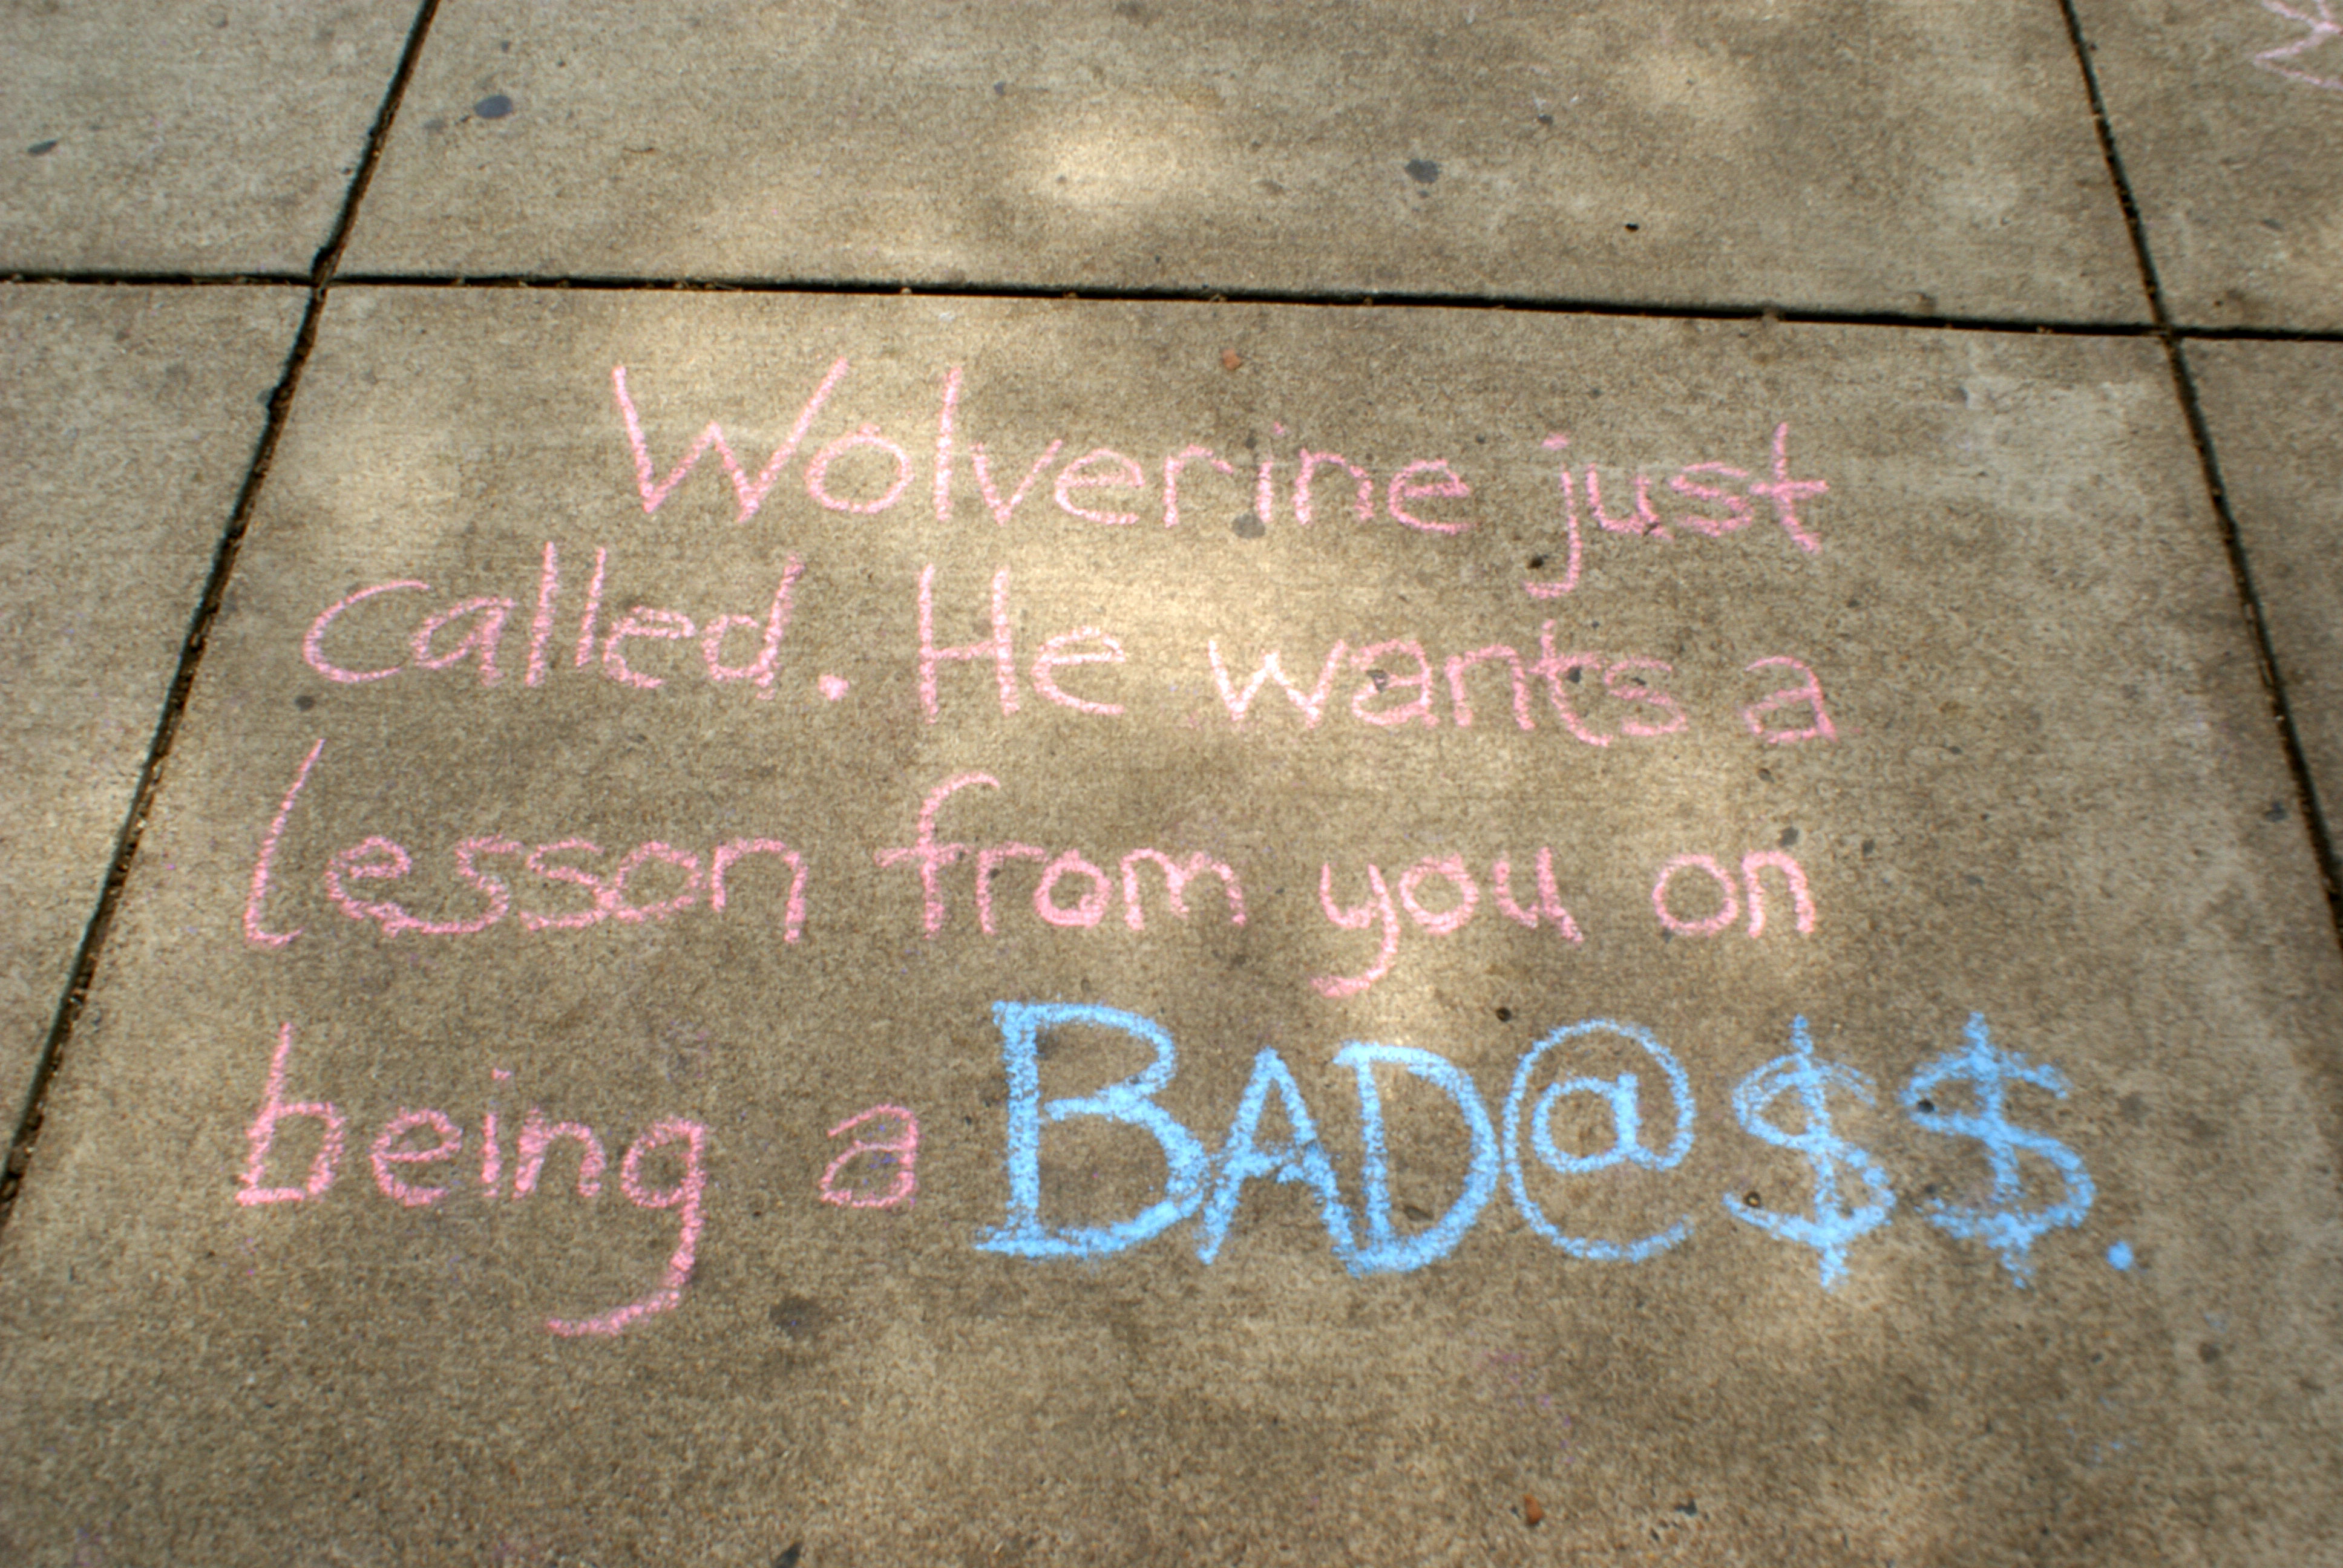 Wolverine just
called. He wants a
lesson from you on
being a BAD@$$.